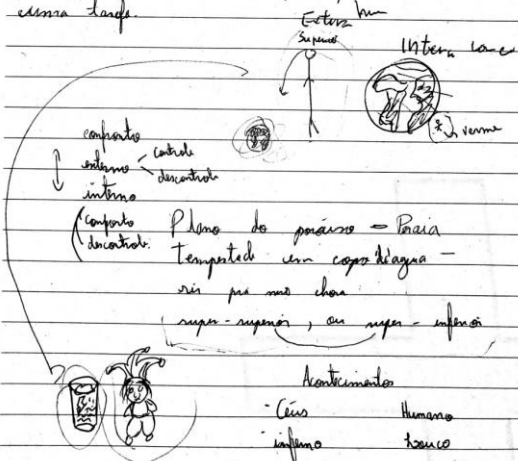 uma tarde.
Externo
Superior
Interno louco
verme
conforto
externo
controle
descontrole
interno
conforto
descontrole.
Plano do paraíso = Praia
Tempestade em copo d'água -
rir pra não chorar
super-superior, ou super-inferior
Acontecimentos
Céus Humano
inferno Louco